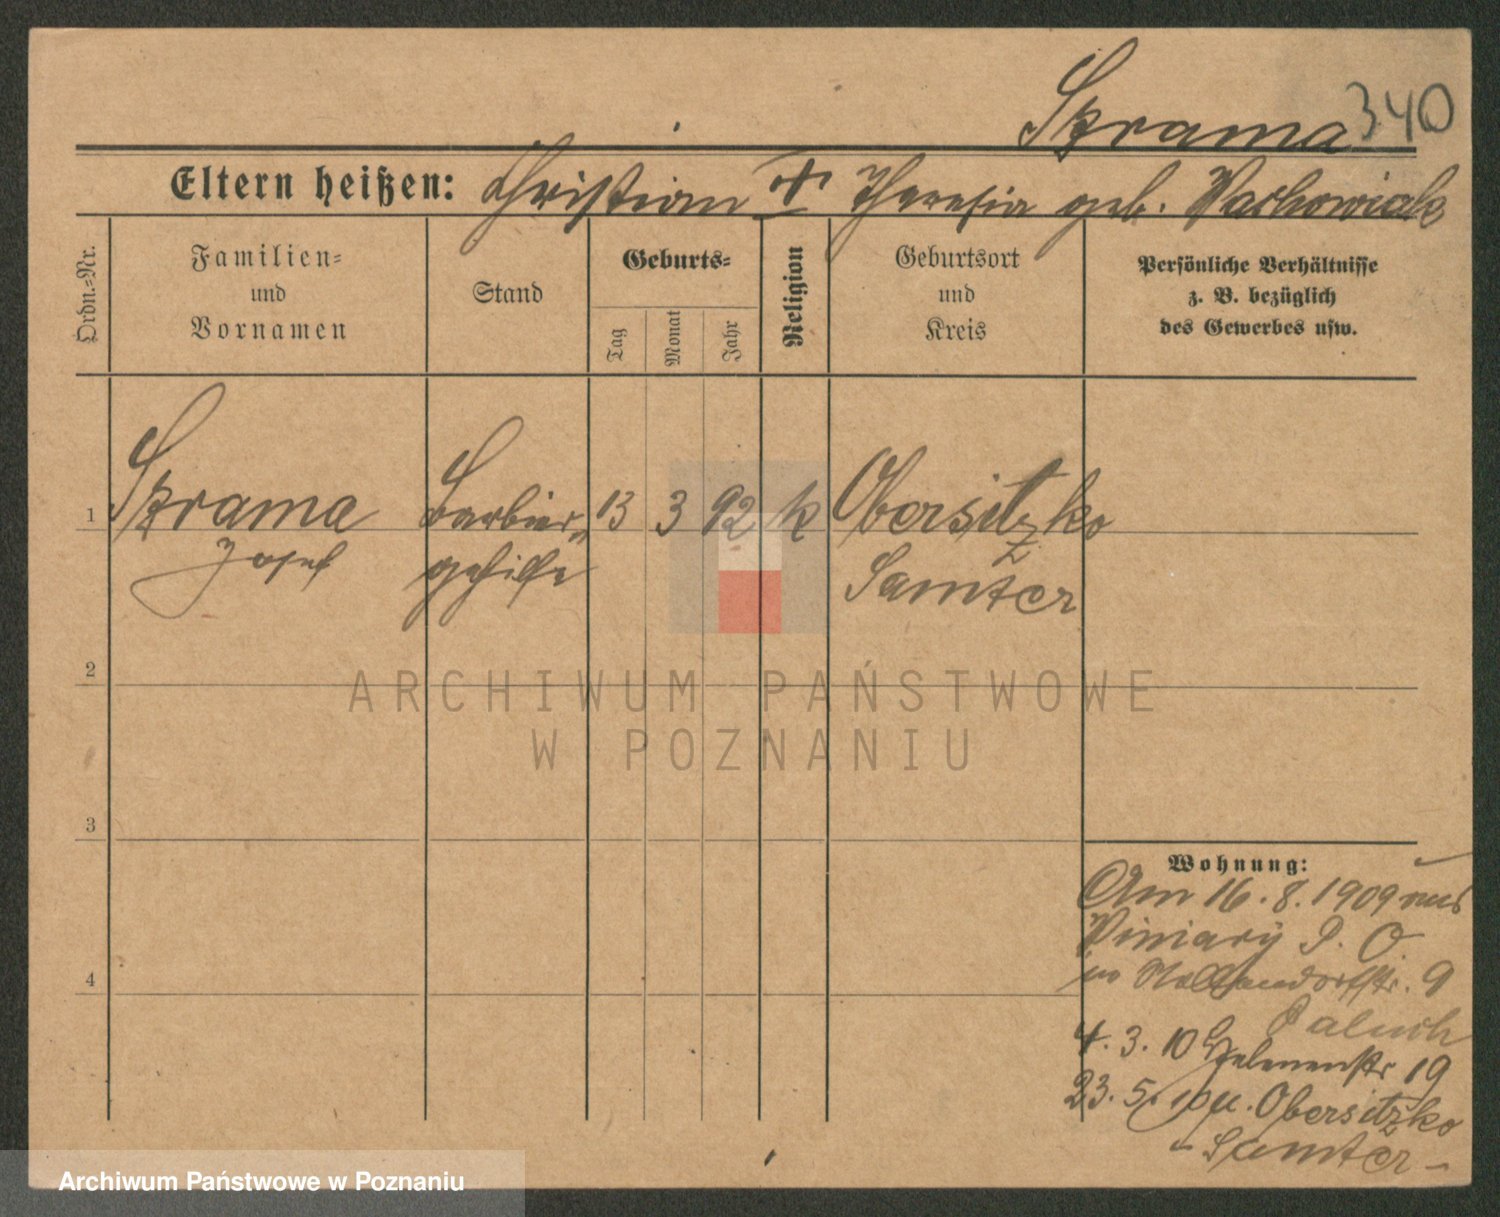 Skrama 340
Eltern heißen: Christian † Theresia geb. Warkowiak
Ordn.-Nr.
Familien-
und
Vornamen
Stand
Geburts-
Tag
Monat
Jahr
Religion
Geburtsort
und
Kreis
Persönliche Verhältnisse
z. B. bezüglich
des Gewerbes usw.
1 Skrama Barbier- 13 3 92 k Obersitzko
Josef gehilfe Samter
2
3
4
Wohnung:
Am 16.8.1909 aus
Winiary P. O
in 9
Paluch
4.3.10 Helenenstr 19
23.5.10 n. Obersitzko
- Samter -
ARCHIWUM PAŃSTWOWE
W POZNANIU
Archiwum Państwowe w Poznaniu